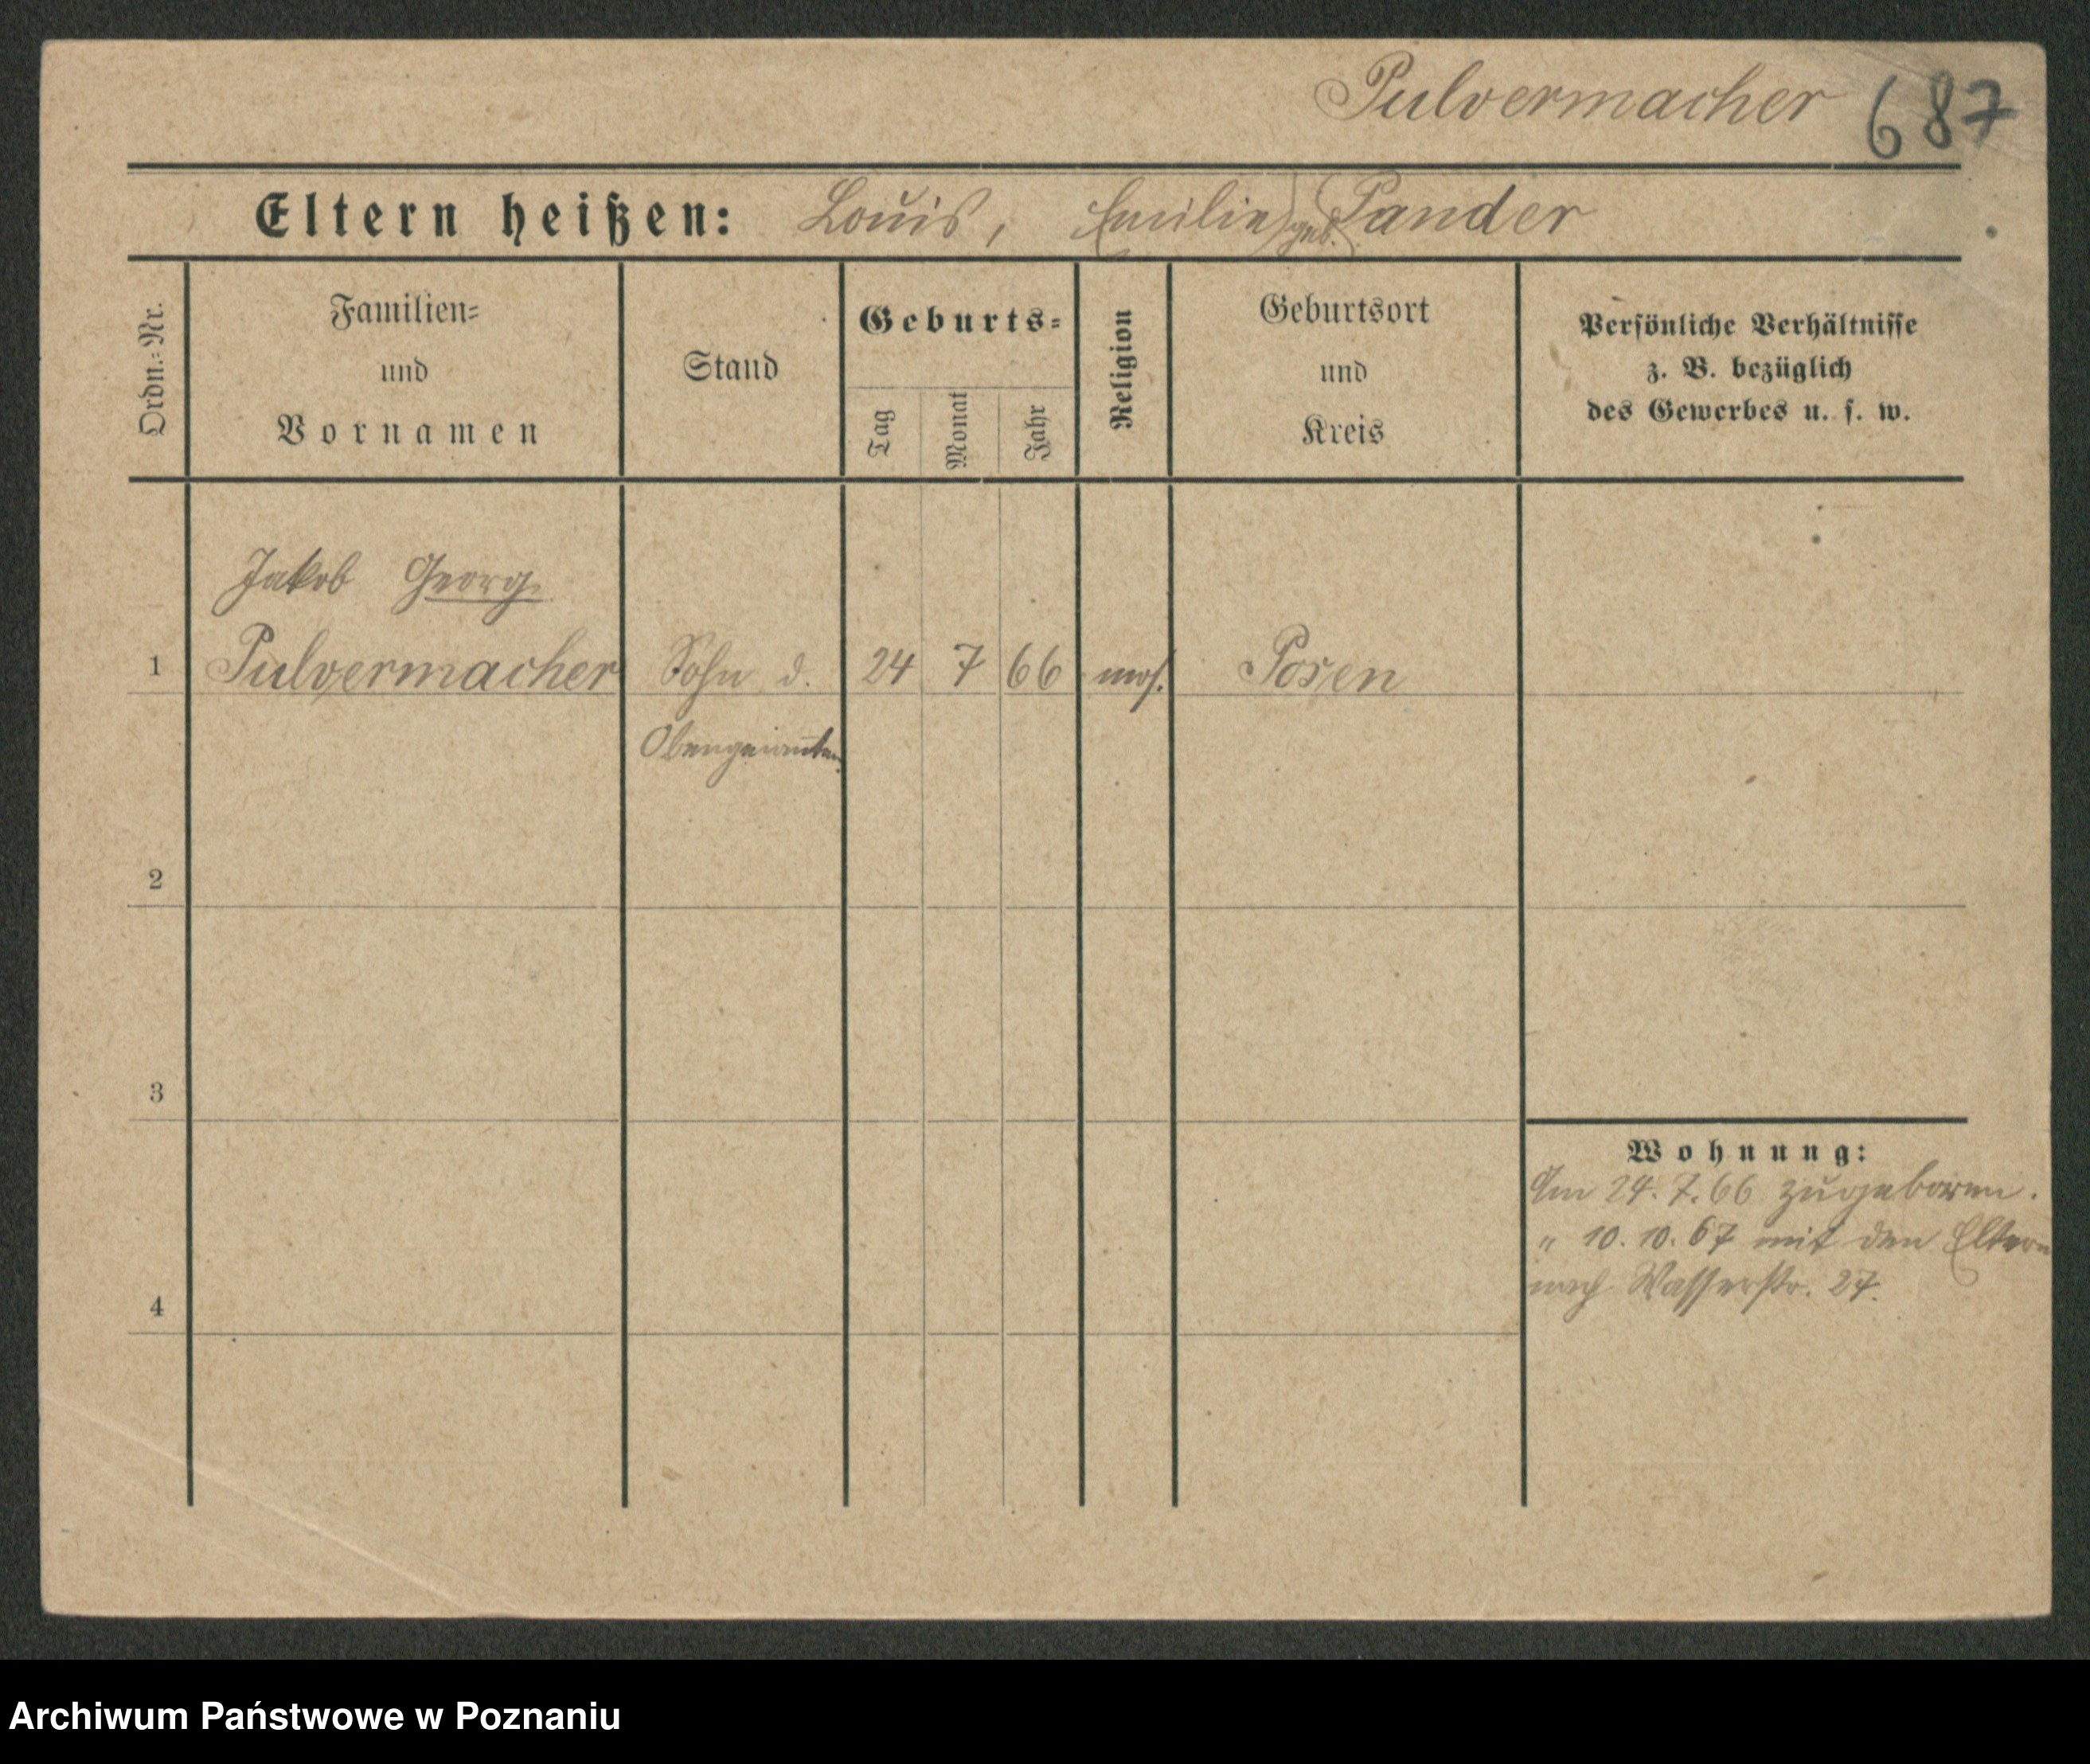 Pulvermacher 687
Eltern heißen: Louis, Emilie geb. Pander
Ordn.=Nr.
Familien=
und
Vornamen
Stand
Geburts=
Tag
Monat
Jahr
Religion
Geburtsort
und
Kreis
Persönliche Verhältnisse
z. B. bezüglich
des Gewerbes u. s. w.
Jakob Georg
1 Pulvermacher Sohn d. 24 7 66 mos. Posen
2
3
4
Wohnung:
Am 24. 7. 66 zugeboren.
" 10. 10. 67 mit den Eltern
nach Wasserstr. 27.
Archiwum Państwowe w Poznaniu